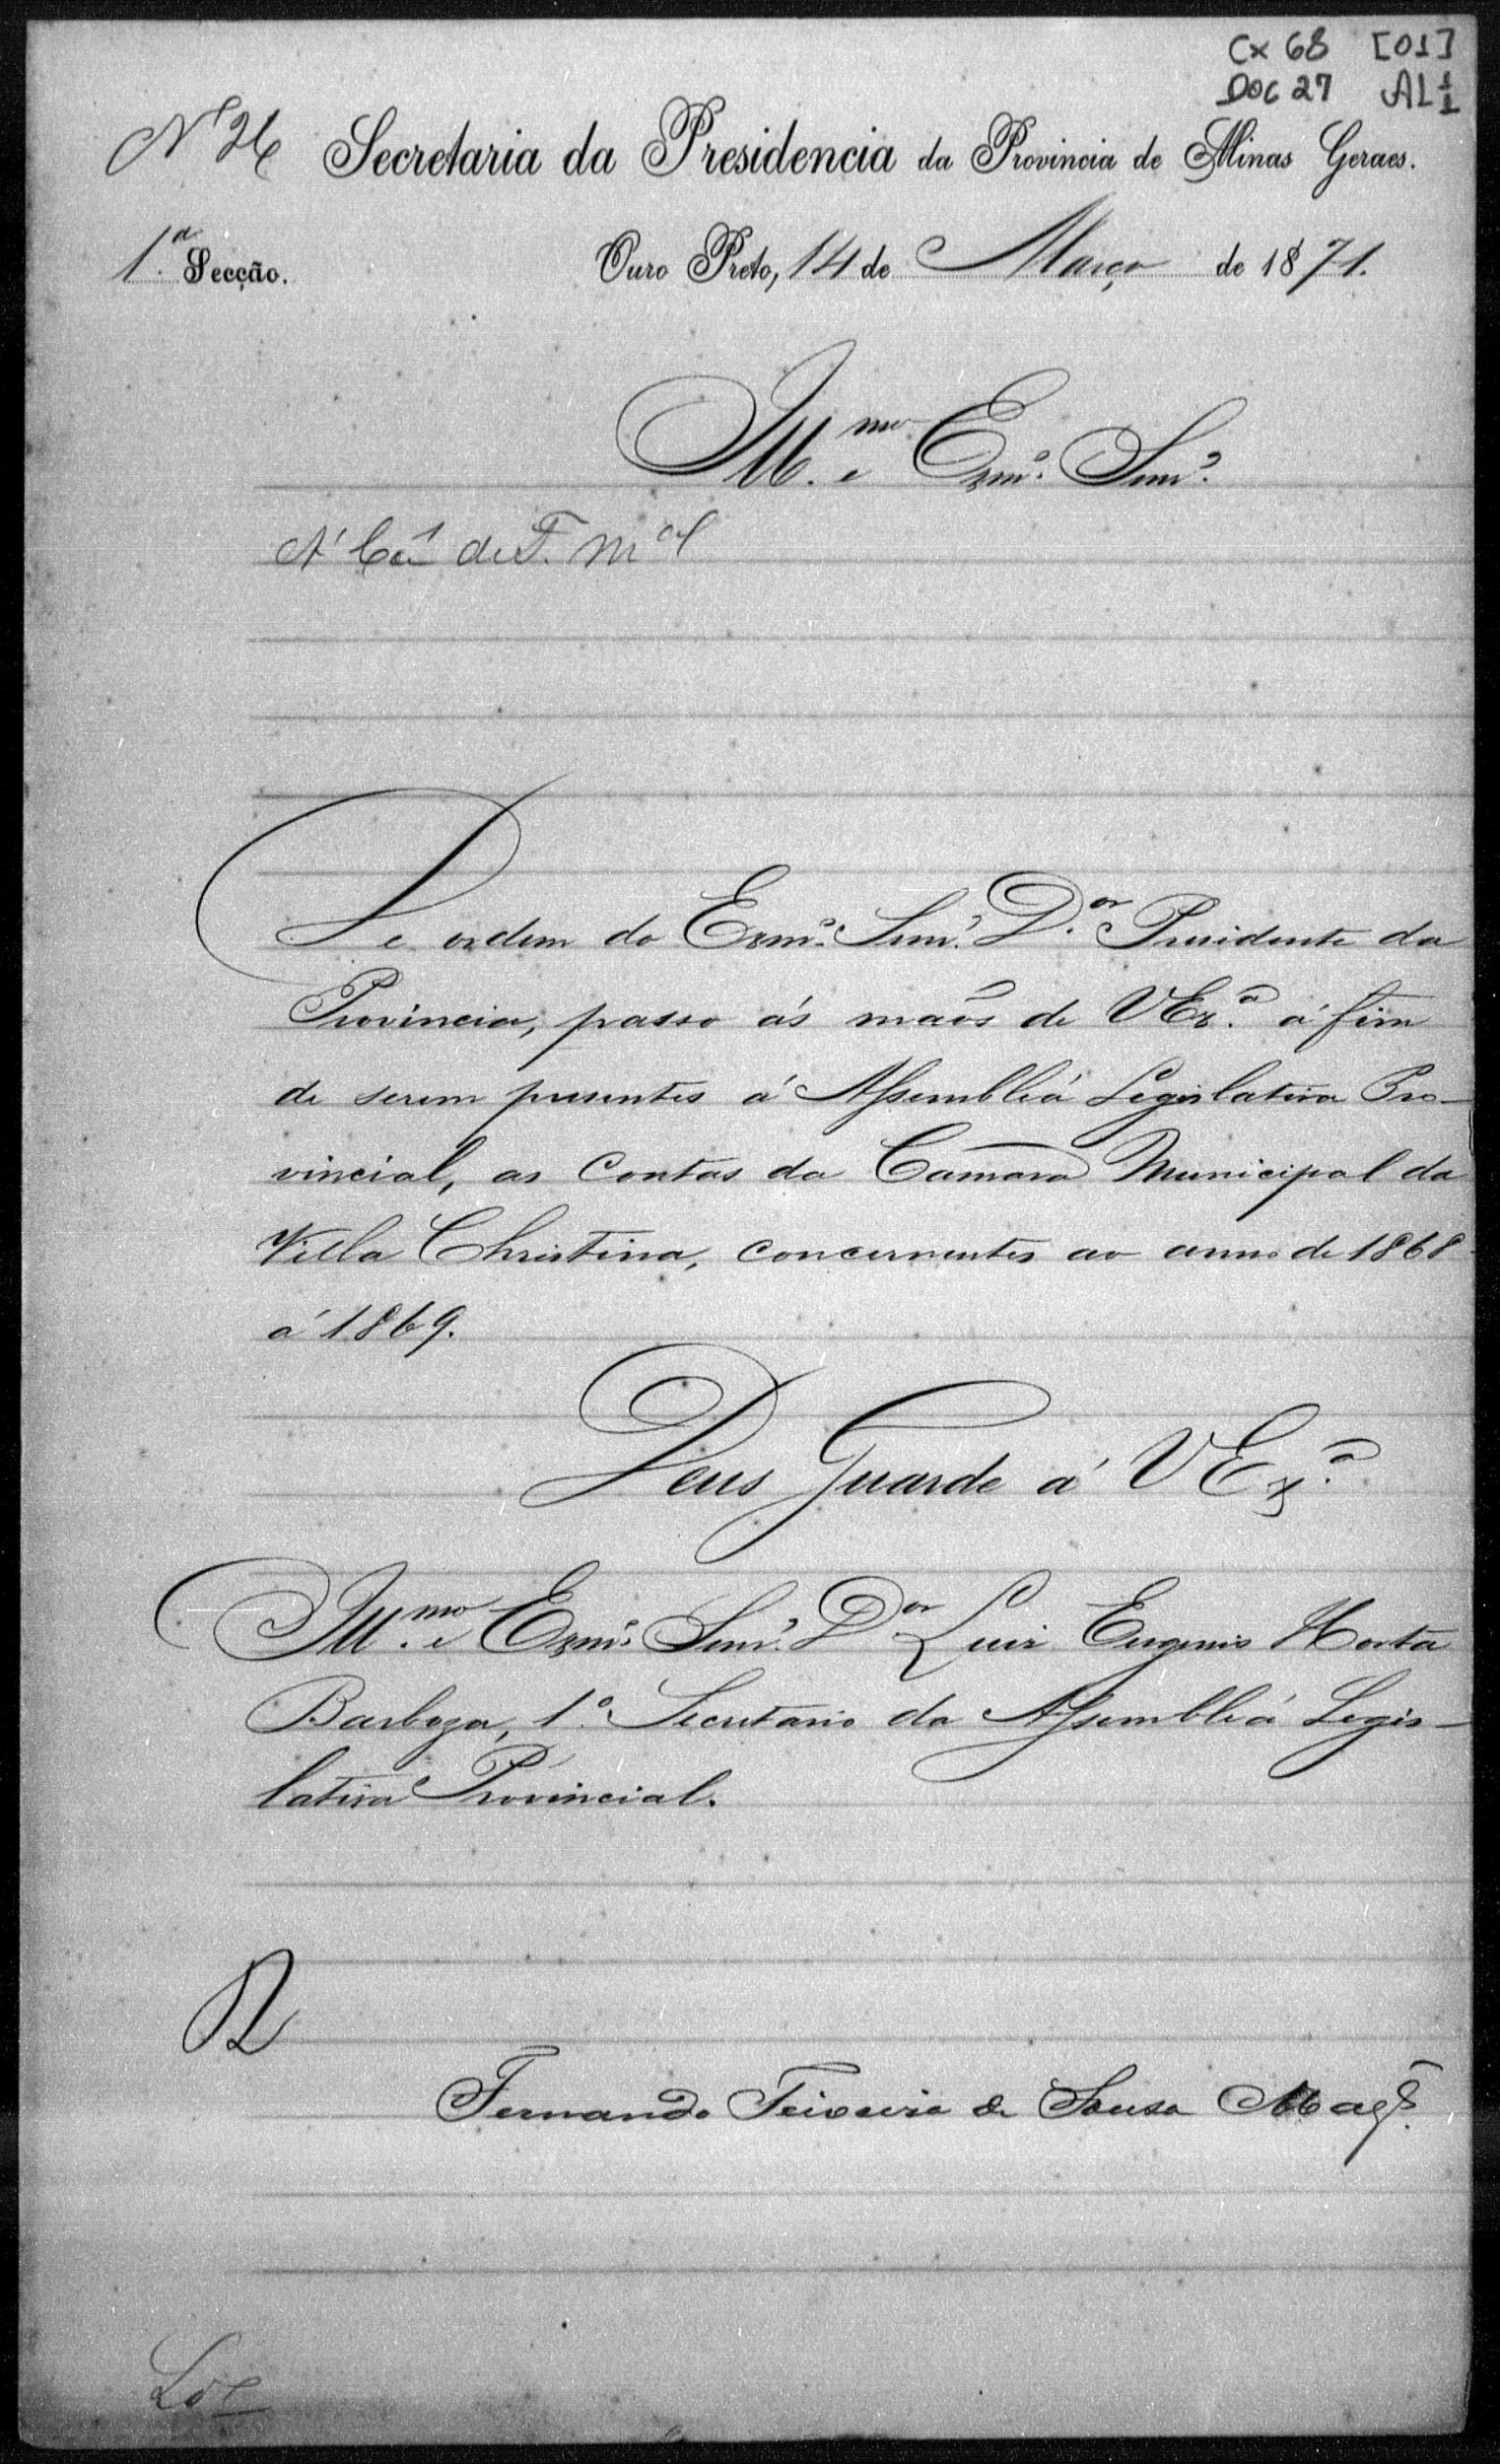 Cx 68 [01]
Doc 27 AL 1/1
Nº 26 Secretaria da Presidencia da Provincia de Minas Geraes.
1ª Secção. Ouro Preto, 14 de Março de 1871.
Ill.mo e Exmº. Senr.
A' Com. de F. M.al
De ordem do Exmº. Senr. D.or Presidente da
Provincia, passo ás maõs de VEx.ª á fim
de serem presentes á Assembleá Legislativa Pro-
vincial, as Contas da Camara Municipal da
Villa Christina, concernentes ao anno de 1868
á 1869.
Deus Guarde á VEx.ª
Ill.mo e Exmº. Senr. D.or Luis Eugenio Horta
Barboza, 1º. Secretario da Assembleá Legis-
lativa Provincial.
Fernando Teixeira de Sousa Mag.es